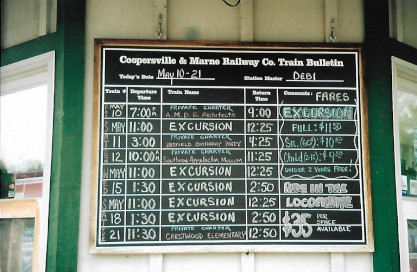 Coopersville & Marne Railway Co. Train Bulletin
Today's Date May 10-21 Station Master DEBI
Train # Departure Time Train Name Return Time Comments: FARES
MAY 10 7:00A PRIVATE CHARTER A.M.D.G. Architects 9:00 EXCURSION
MAY 11:00 EXCURSION 12:25 FULL: $11.50
11 3:00 PRIVATE CHARTER BIRTHDAY PARTY 4:25 SR. (60+) $10.50
12 10:00A PRIVATE CHARTER Southeast Appalachian Museum 11:25 Child (2-12) $9.50
MAY 11:00 EXCURSION 12:25 UNDER 2 YEARS FREE!
15 1:30 EXCURSION 2:50 RIDE IN THE
MAY 11:00 EXCURSION 12:25 LOCOMOTIVE
18 1:30 EXCURSION 2:50 $35 PER SPACE AVAILABLE
21 11:30 PRIVATE CHARTER CRESTWOOD ELEMENTARY 12:50